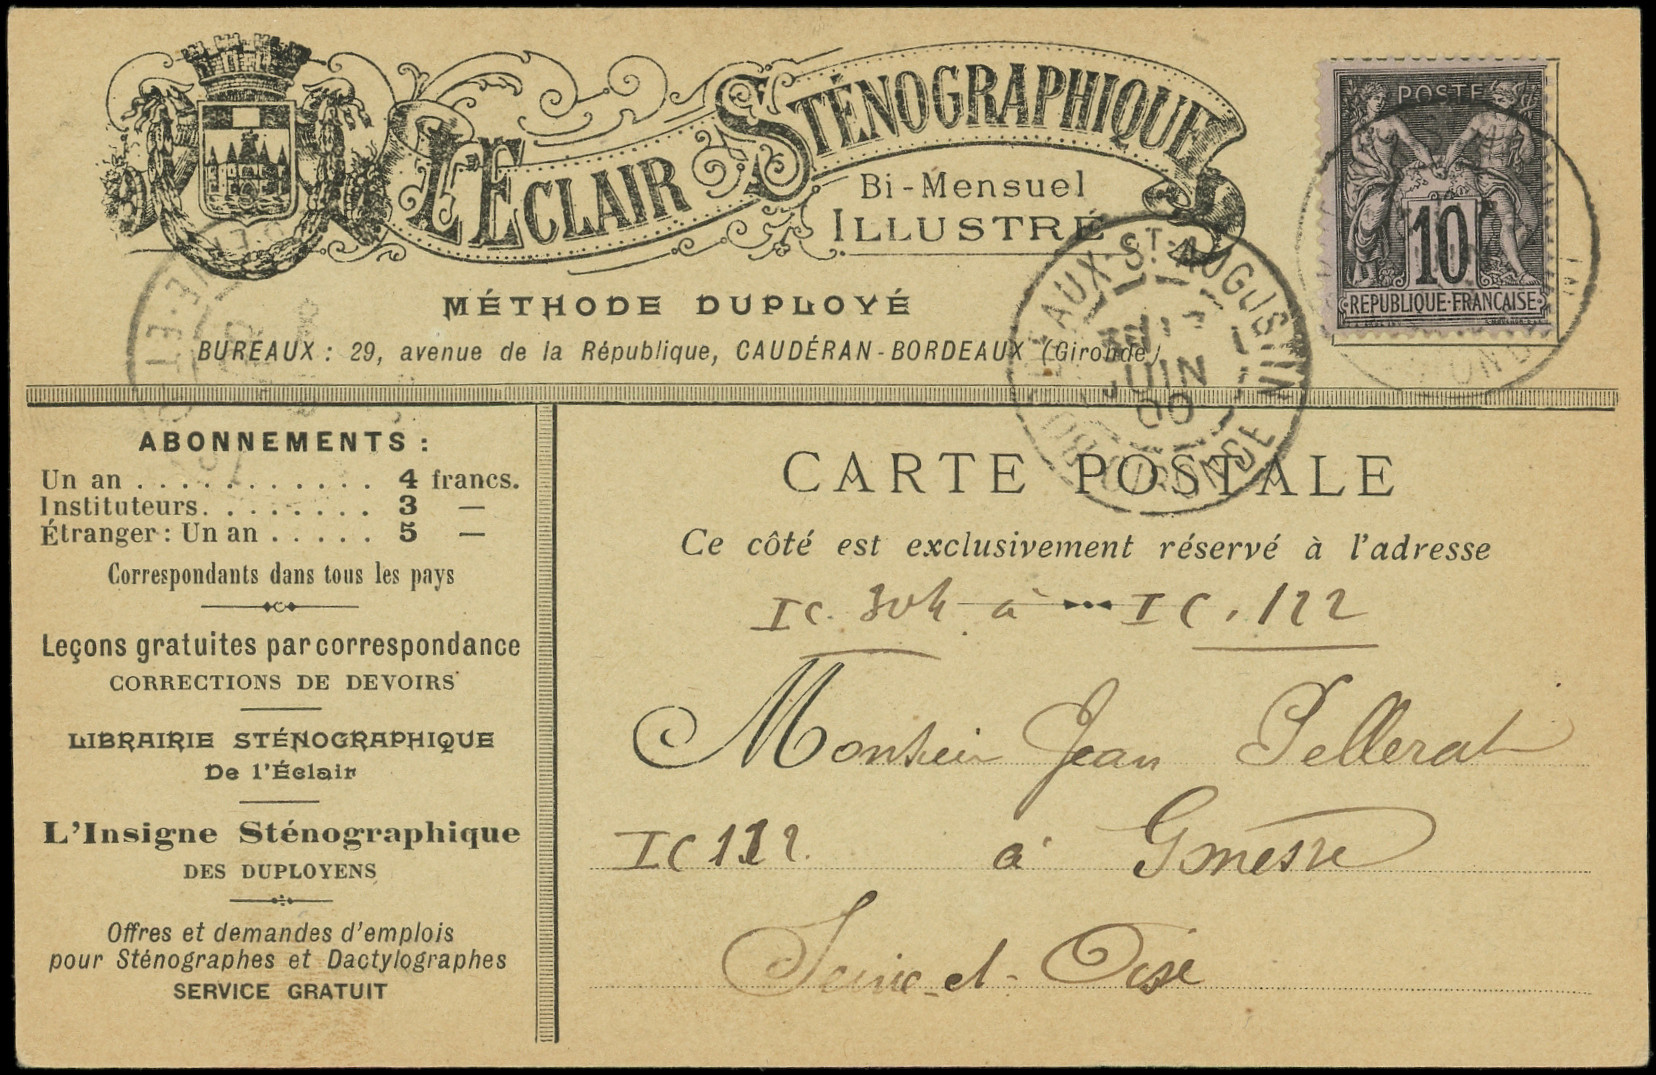 L'ECLAIR STÉNOGRAPHIQUE
Bi-Mensuel
ILLUSTRÉ
MÉTHODE DUPLOYÉ
BUREAUX : 29, avenue de la République, CAUDÉRAN-BORDEAUX (Gironde)
POSTE
10
REPUBLIQUE FRANCAISE
EAUX-ST-AUGUSTIN
JUIN
00
GIRONDE
ABONNEMENTS :
Un an . . . . . . . . . . . 4 francs.
Instituteurs. . . . . . . . 3 —
Étranger : Un an . . . . . 5 —
Correspondants dans tous les pays
Leçons gratuites par correspondance
CORRECTIONS DE DEVOIRS
LIBRAIRIE STÉNOGRAPHIQUE
De l'Éclair
L'Insigne Sténographique
DES DUPLOYENS
Offres et demandes d'emplois
pour Sténographes et Dactylographes
SERVICE GRATUIT
CARTE POSTALE
Ce côté est exclusivement réservé à l'adresse
IC. 304 à IC. 122
Monsieur Jean Pellerat
IC 122. à Gonesse
Seine-et-Oise